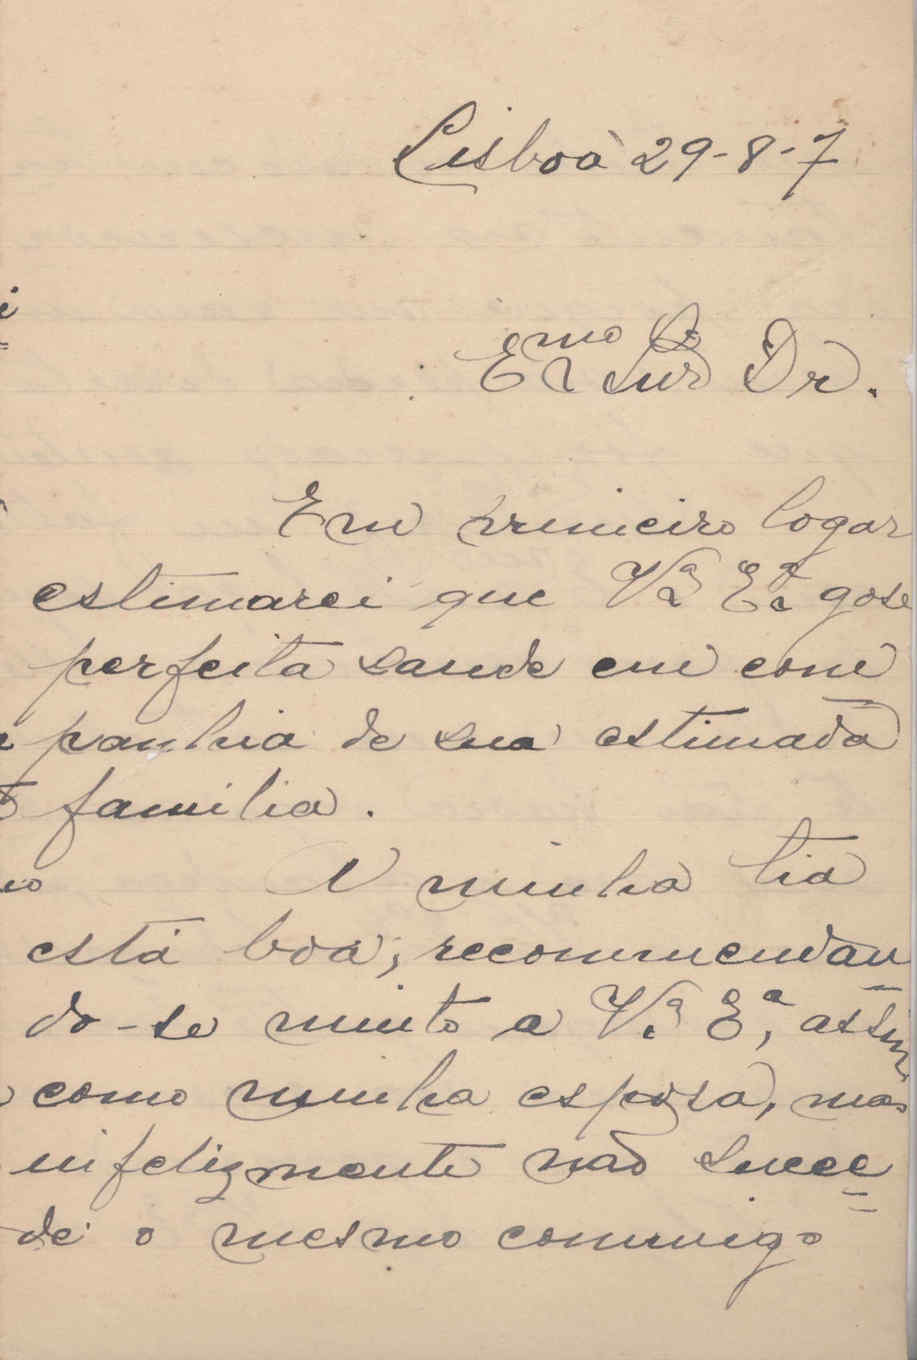 Lisboa 29-8-7
Exmo Snr Dr.
Em primeiro logar
estimarei que Vª Exª gose
perfeita saude em com
panhia de sua estimada
familia.
A minha tia
está boa, recommendan
do-se muito a Vª Exª, assim
como minha esposa, mas
infelizmente não succe=
de o mesmo commigo